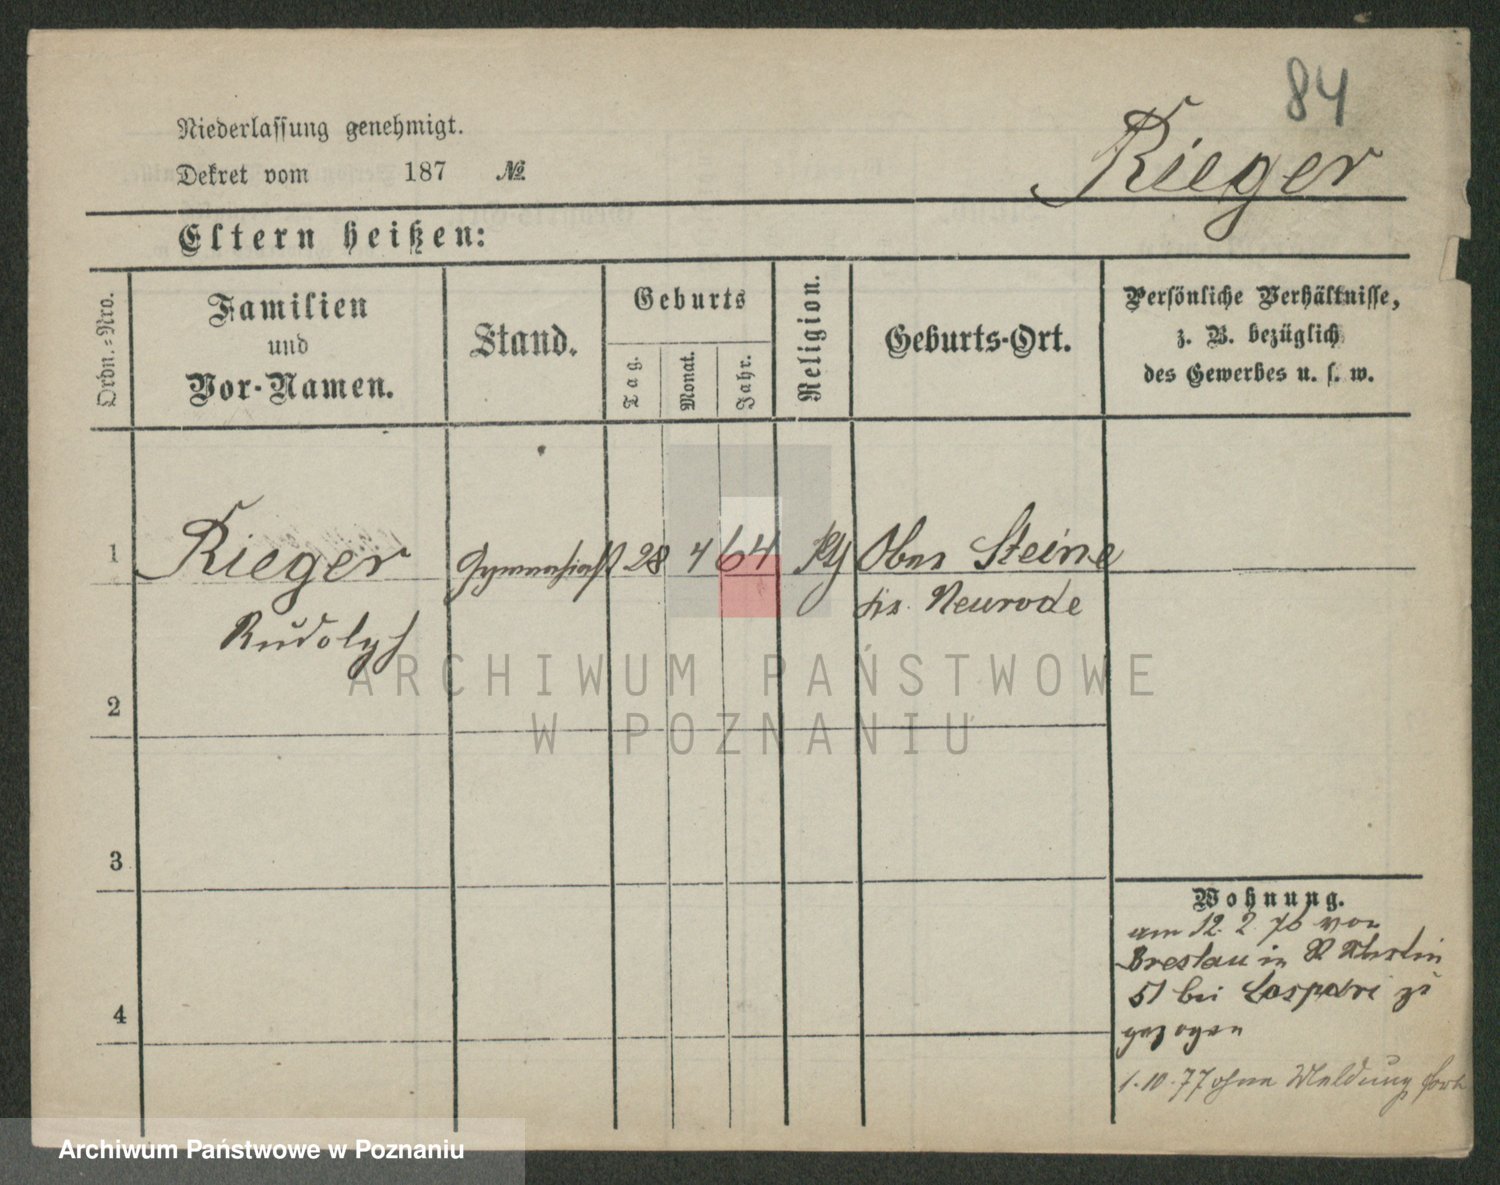 84
Niederlassung genehmigt.
Rieger
Dekret vom 187 №
Eltern heißen:
Ordn.-Nro.
Familien
und
Vor-Namen.
Stand.
Geburts
Tag.
Monat.
Jahr.
Religion.
Geburts-Ort.
Persönliche Verhältnisse,
z. B. bezüglich
des Gewerbes u. s. w.
1 Rieger Gymnasiast 28 4 64 Ober Steine
Rudolph Neurode
2
3
4
Wohnung.
am 12. 2. 76 von
Breslau in St
51 bei zu
gezogen
1.10.77 ohne Meldung fort
ARCHIWUM PAŃSTWOWE
W POZNANIU
Archiwum Państwowe w Poznaniu